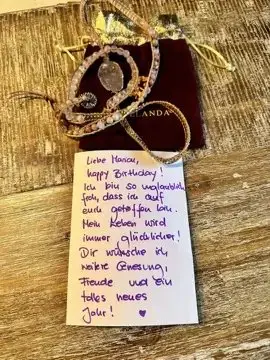 LANDA
Liebe Marion,
happy Birthday!
Ich bin so unglaublich
froh, dass ich auf
euch getroffen bin.
Mein Leben wird
immer glücklicher!
Dir wünsche ich,
weitere Genesung,
Freude und ein
tolles neues
Jahr! ♥